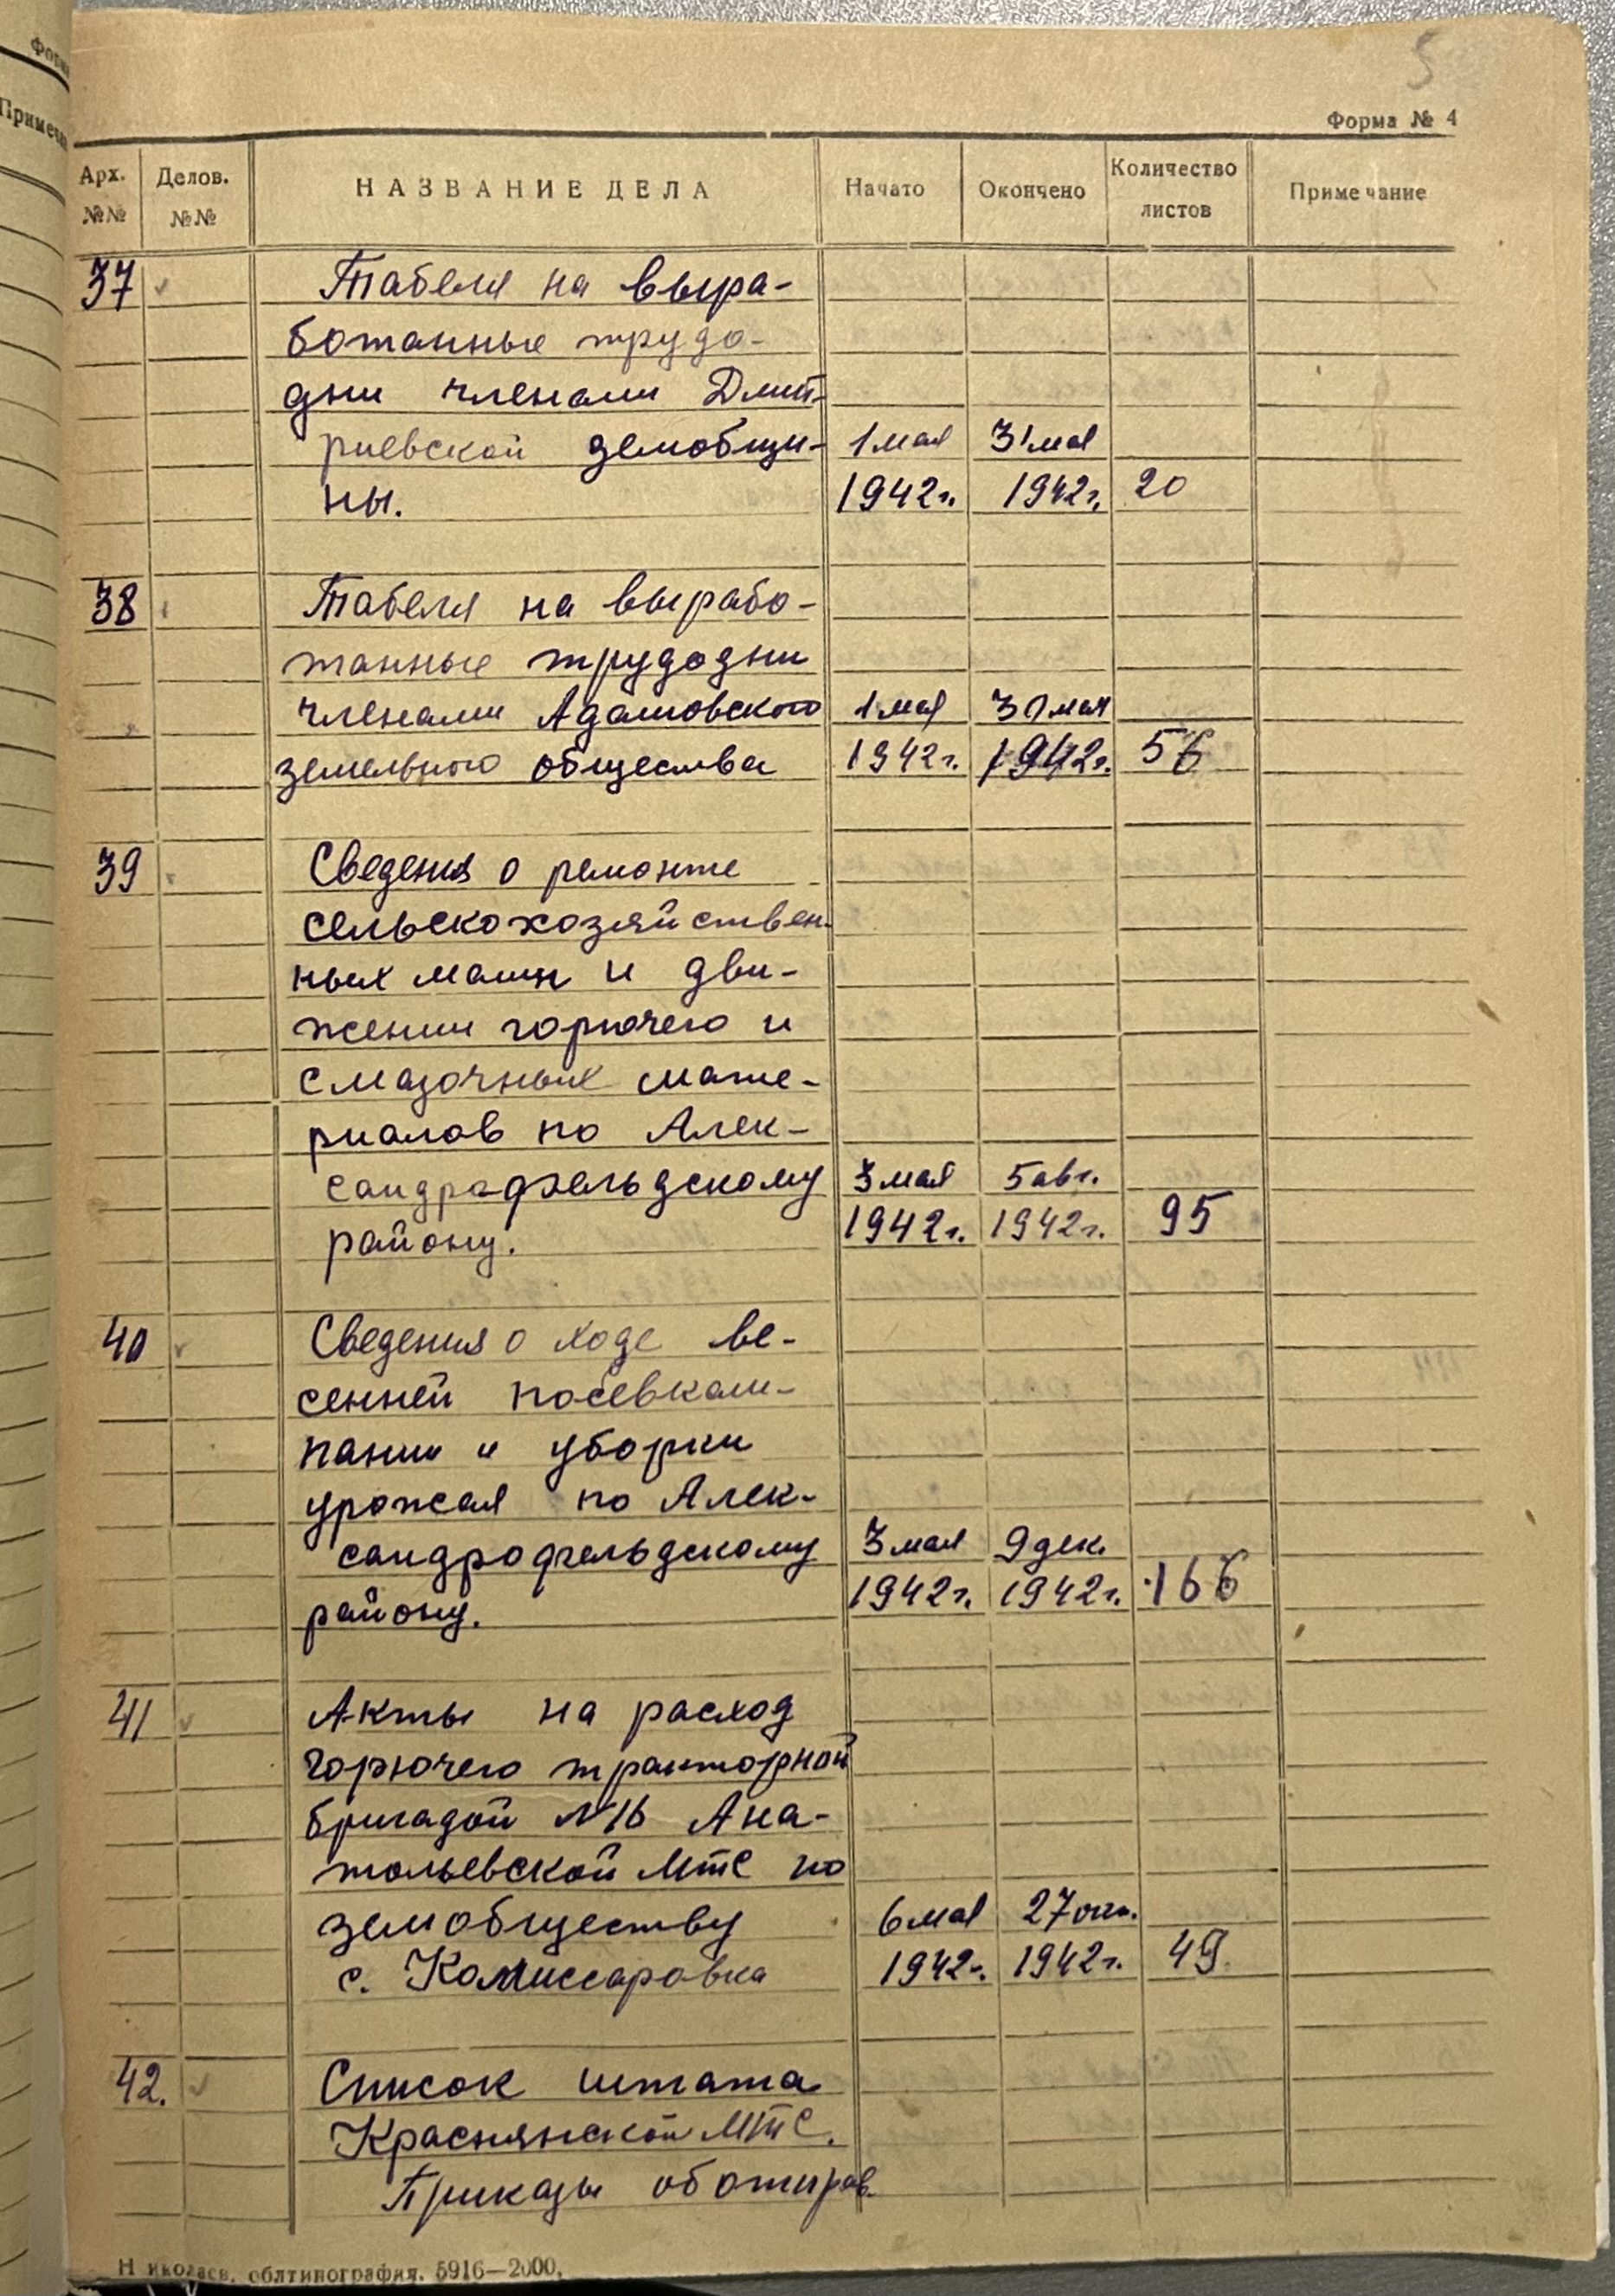 5
Форма № 4
Арх. №№ Делов. №№ НАЗВАНИЕ ДЕЛА Начато Окончено Количество листов Примечание
37 Табеля на выра-
ботанные трудо-
дни членами Дмит-
риевской земобщи- 1 мая 31 мая
ны. 1942г. 1942г. 20
38 Табеля на вырабо-
танные трудодни
членами Адамовского 1 мая 30 мая
земельного общества 1942г. 1942г. 56
39 Сведения о ремонте
сельскохозяйствен-
ных машин и дви-
жении горючего и
смазочных мате-
риалов по Алек-
сандрафельдскому 3 мая 5 авг.
району. 1942г. 1942г. 95
40 Сведения о ходе ве-
сенней посевкам-
пании и уборки
урожая по Алек-
сандрофельдскому 3 мая 9 дек.
району. 1942г. 1942г. 166
41 Акты на расход
горючего тракторной
бригадой №16 Ана-
тольевской МТС по
земобществу 6 мая 27 окт.
с. Комиссаровка 1942г. 1942г. 49
42. Список штата
Краснянской МТС.
Приказы об
Николаев, облтипография. 5916—2000.